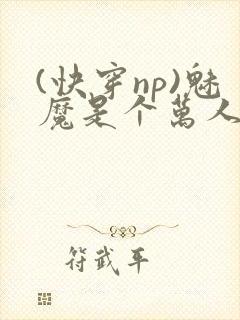 (快穿np)魅
魔是个萬人
符武平